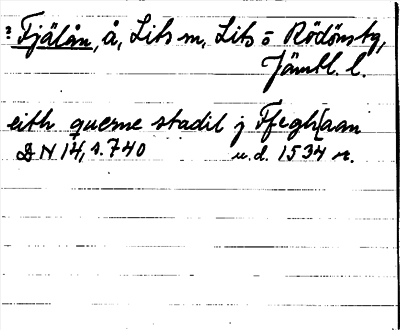 ? Fjälån, å, Lits sn, Lits o Rödöns tg,
Jämtl. l.
eith querne stadil j Ffeghlaan
DN 14, s. 740 u.d. 1534 r.